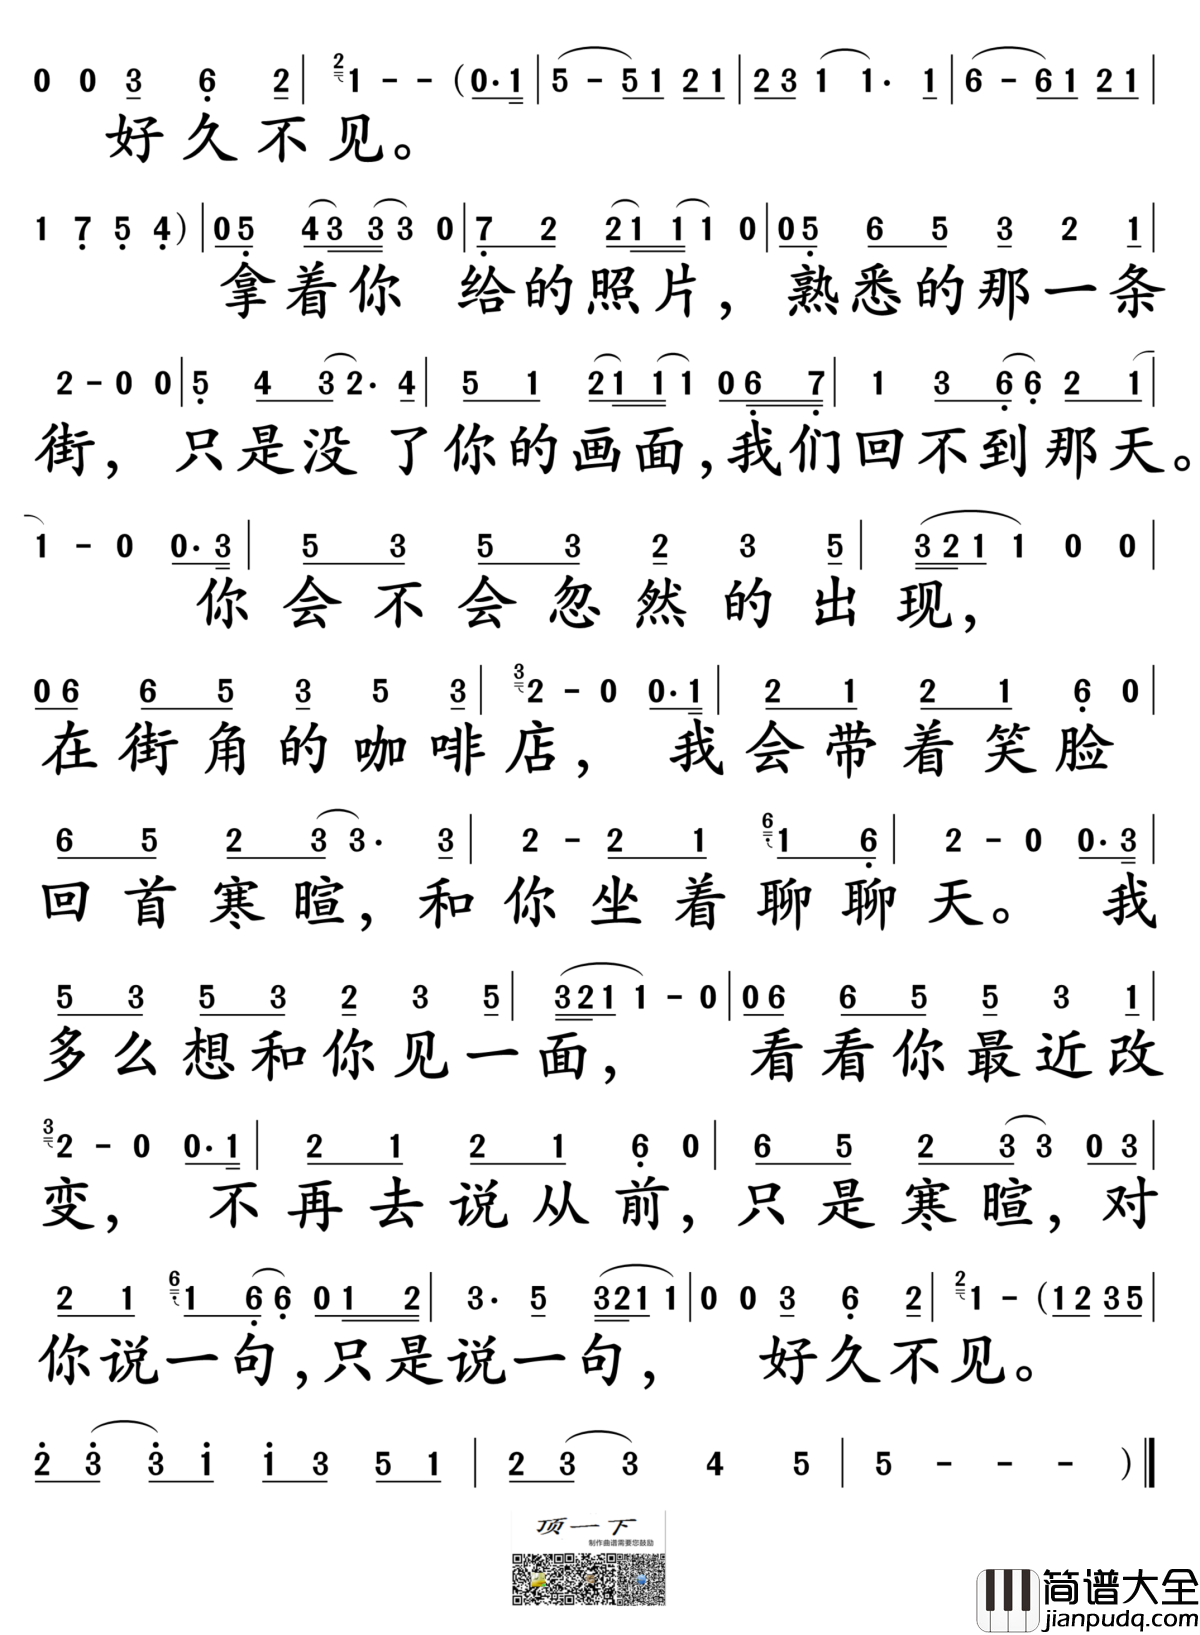 0 0 3 6 2 | 2 1 - - (0·1 | 5 - 51 21 | 23 1 1· 1 | 6 - 61 21 |
好久不见。
1 7 5 4) | 05 43 33 0 | 7 2 21 11 0 | 05 6 5 3 2 1 |
拿着你 给的照片，熟悉的那一条
2 - 0 0 | 5 4 3 2· 4 | 5 1 21 11 06 7 | 1 3 6 6 2 1 |
街，只是没了你的画面，我们回不到那天。
1 - 0 0·3 | 5 3 5 3 2 3 5 | 321 1 0 0 |
你会不会忽然的出现，
06 6 5 3 5 3 | 3 2 - 0 0·1 | 2 1 2 1 6 0 |
在街角的咖啡店，我会带着笑脸
6 5 2 3 3· 3 | 2 - 2 1 6 1 6 | 2 - 0 0·3 |
回首寒暄，和你坐着聊聊天。我
5 3 5 3 2 3 5 | 321 1 - 0 | 06 6 5 5 3 1 |
多么想和你见一面，看看你最近改
3 2 - 0 0·1 | 2 1 2 1 6 0 | 6 5 2 3 3 03 |
变，不再去说从前，只是寒暄，对
2 1 6 1 6 6 01 2 | 3· 5 321 1 | 0 0 3 6 2 | 2 1 - (12 35 |
你说一句，只是说一句，好久不见。
2 3 3 1 1 3 5 1 | 2 3 3 4 5 | 5 - - - )‖
顶一下
制作曲谱需要您鼓励
简谱大全
jianpudq.com